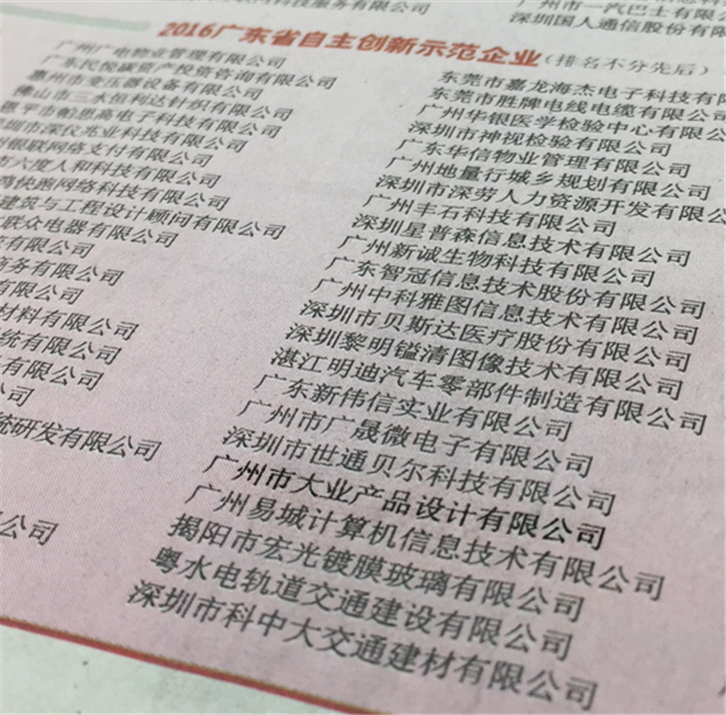 科技服务有限公司
广州市一汽巴士有限
深圳国人通信股份有限
2016广东省自主创新示范企业(排名不分先后)
广州广电物业管理有限公司
广东民悦碳资产投资咨询有限公司
惠州市变压器设备有限公司
佛山市三水恒利达针织有限公司
恩平市帕思高电子科技有限公司
深圳市深仪兆业科技有限公司
银联网络支付有限公司
市六度人和科技有限公司
鸡快跑网络科技有限公司
建筑与工程设计顾问有限公司
联众电器有限公司
有限公司
商务有限公司
有限公司
材料有限公司
统有限公司
有限公司
公司
统研发有限公司
公司
东莞市嘉龙海杰电子科技有限
东莞市胜牌电线电缆有限公
广州华银医学检验中心有限公
深圳市神视检验有限公司
广东华信物业管理有限公司
广州地量行城乡规划有限公司
深圳市深劳人力资源开发有限公
广州丰石科技有限公司
深圳星普森信息技术有限公司
广州新诚生物科技有限公司
广东智冠信息技术股份有限公司
广州中科雅图信息技术有限公司
深圳市贝斯达医疗股份有限公司
深圳黎明镒清图像技术有限公司
湛江明迪汽车零部件制造有限公司
广东新伟信实业有限公司
广州市广晟微电子有限公司
深圳市世通贝尔科技有限公司
广州市大业产品设计有限公司
广州易城计算机信息技术有限公司
揭阳市宏光镀膜玻璃有限公司
粤水电轨道交通建设有限公司
深圳市科中大交通建材有限公司